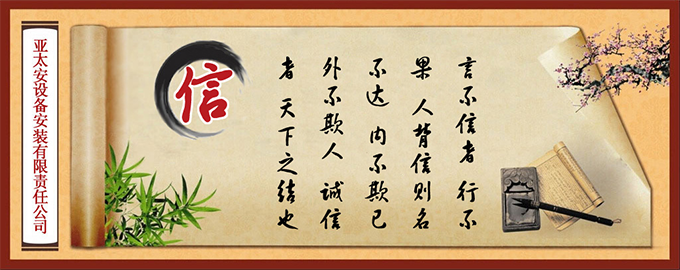 亚太安设备安装有限责任公司
信
言不信者 行不
果 人背信则名
不达 内不欺已
外不欺人 诚信
者 天下之结也